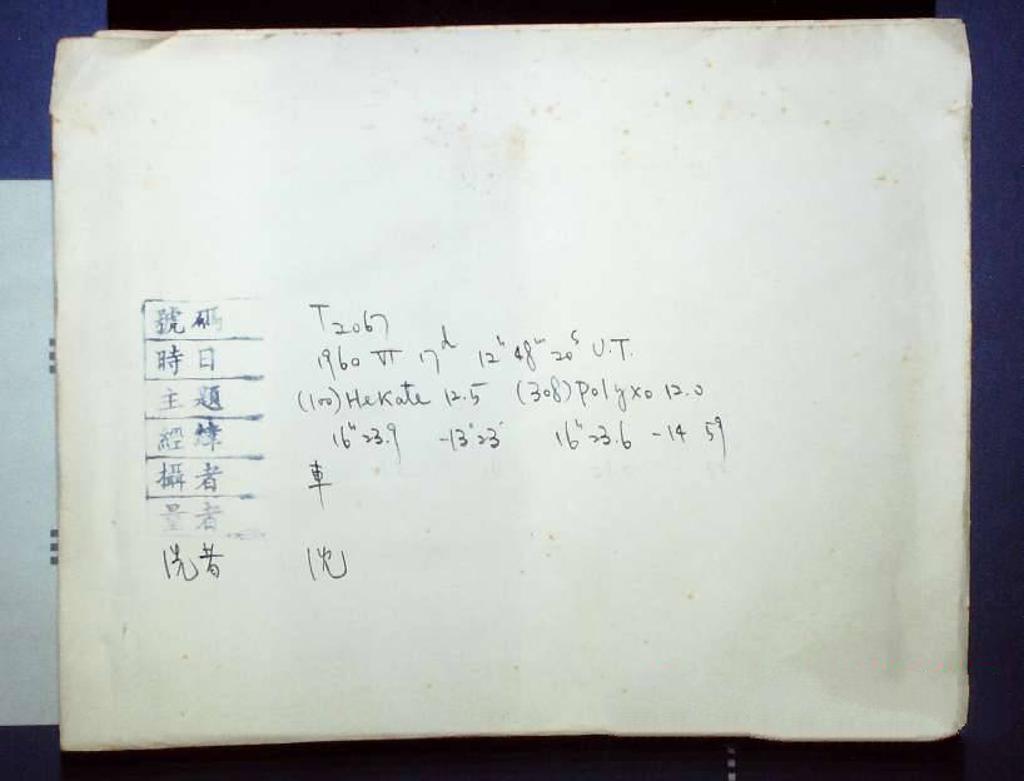 號碼 T2067
時日 1960 VI 17d 12h 48m 20s U.T.
主題 (100) Hekate 12.5 (308) Polyxo 12.0
經緯 16h 23.9 -13°23' 16h 23.6 -14 59
攝者 車
量者
洗者 沈